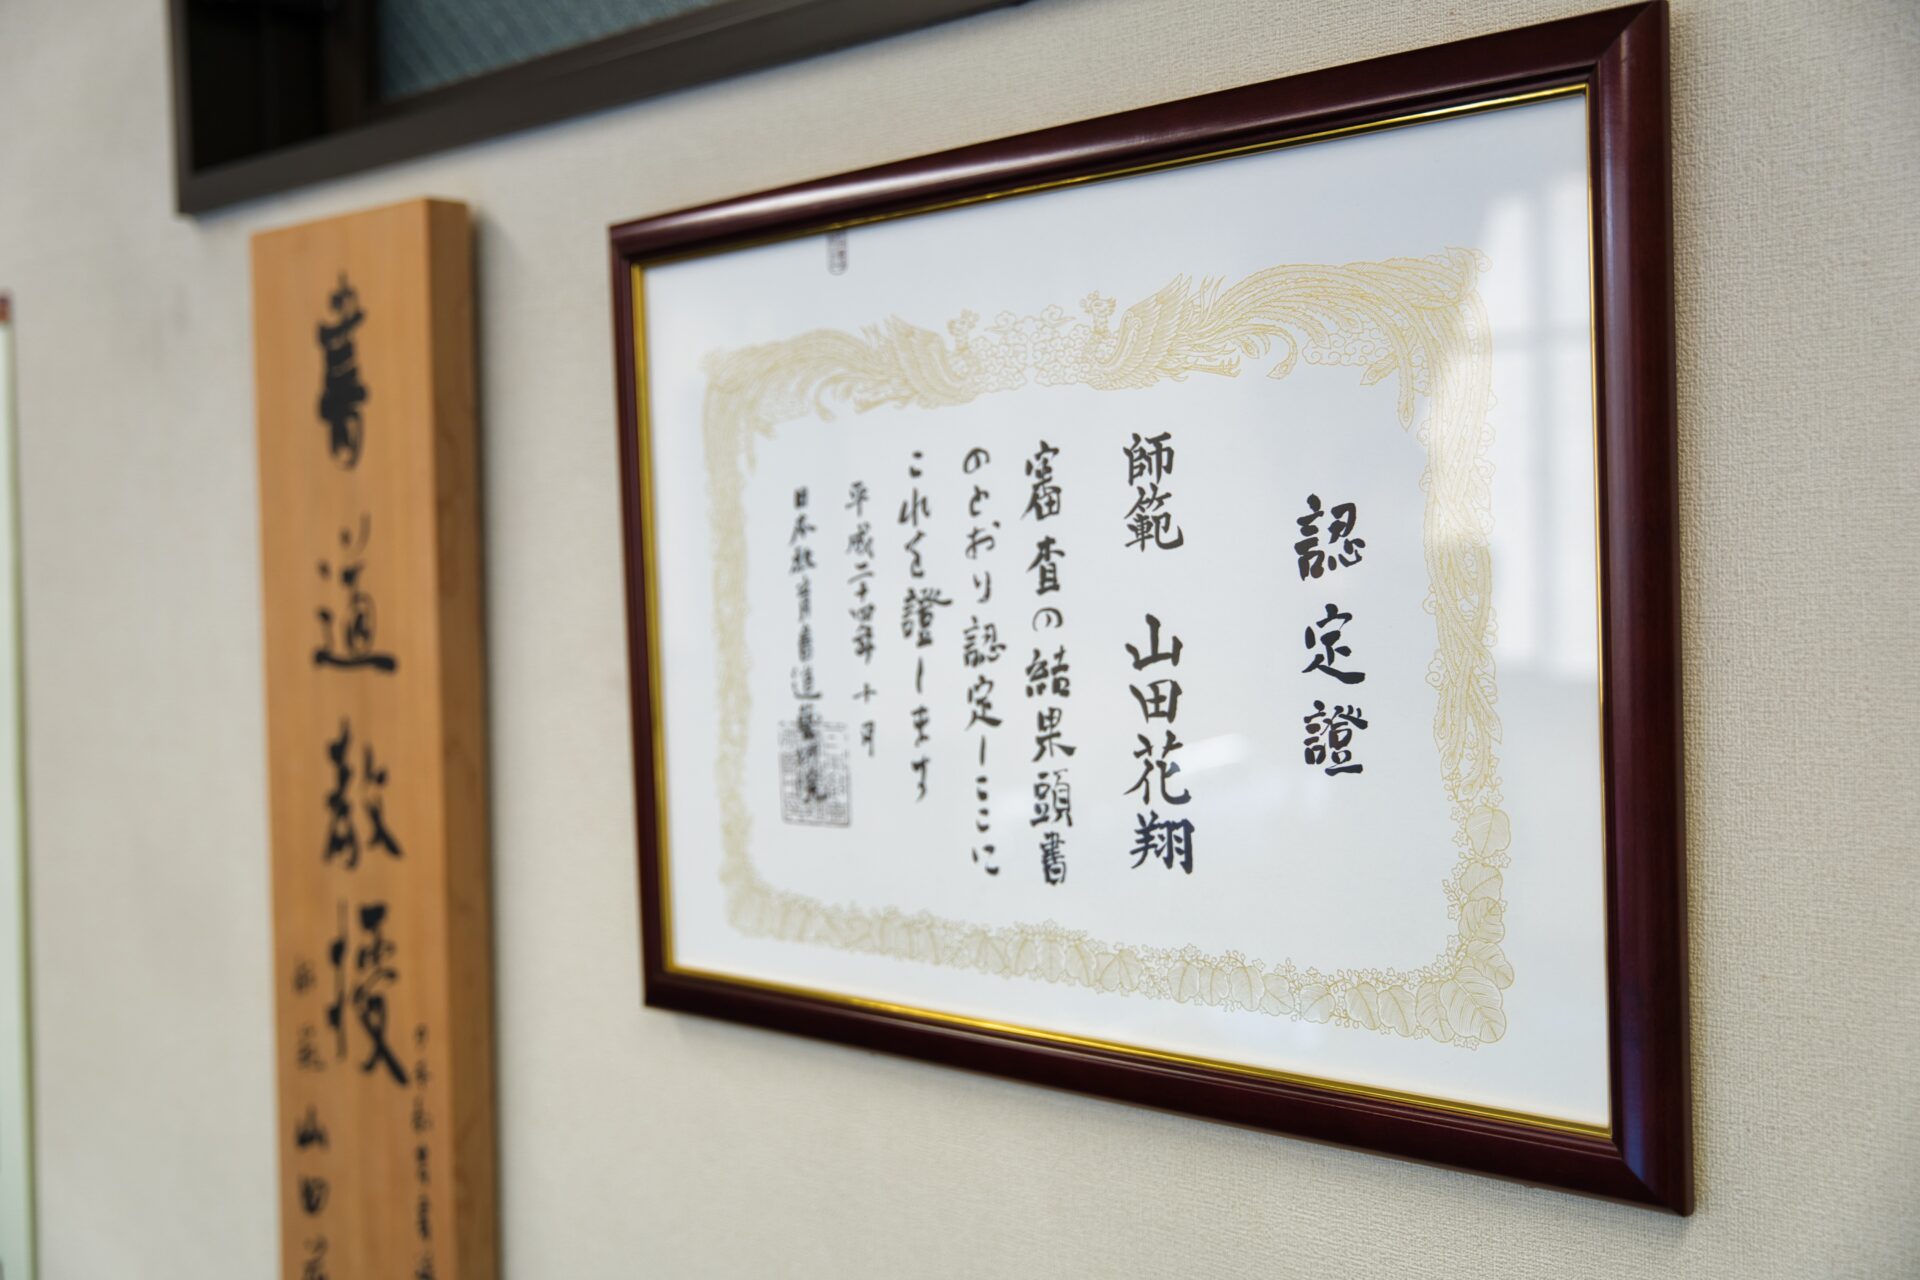 認定證
師範 山田花翔
審査の結果頭書
のとおり認定しここに
これを證します
平成二十四年十月
日本教育書道藝術院
書道教授
師範 山田花
日本教育書道